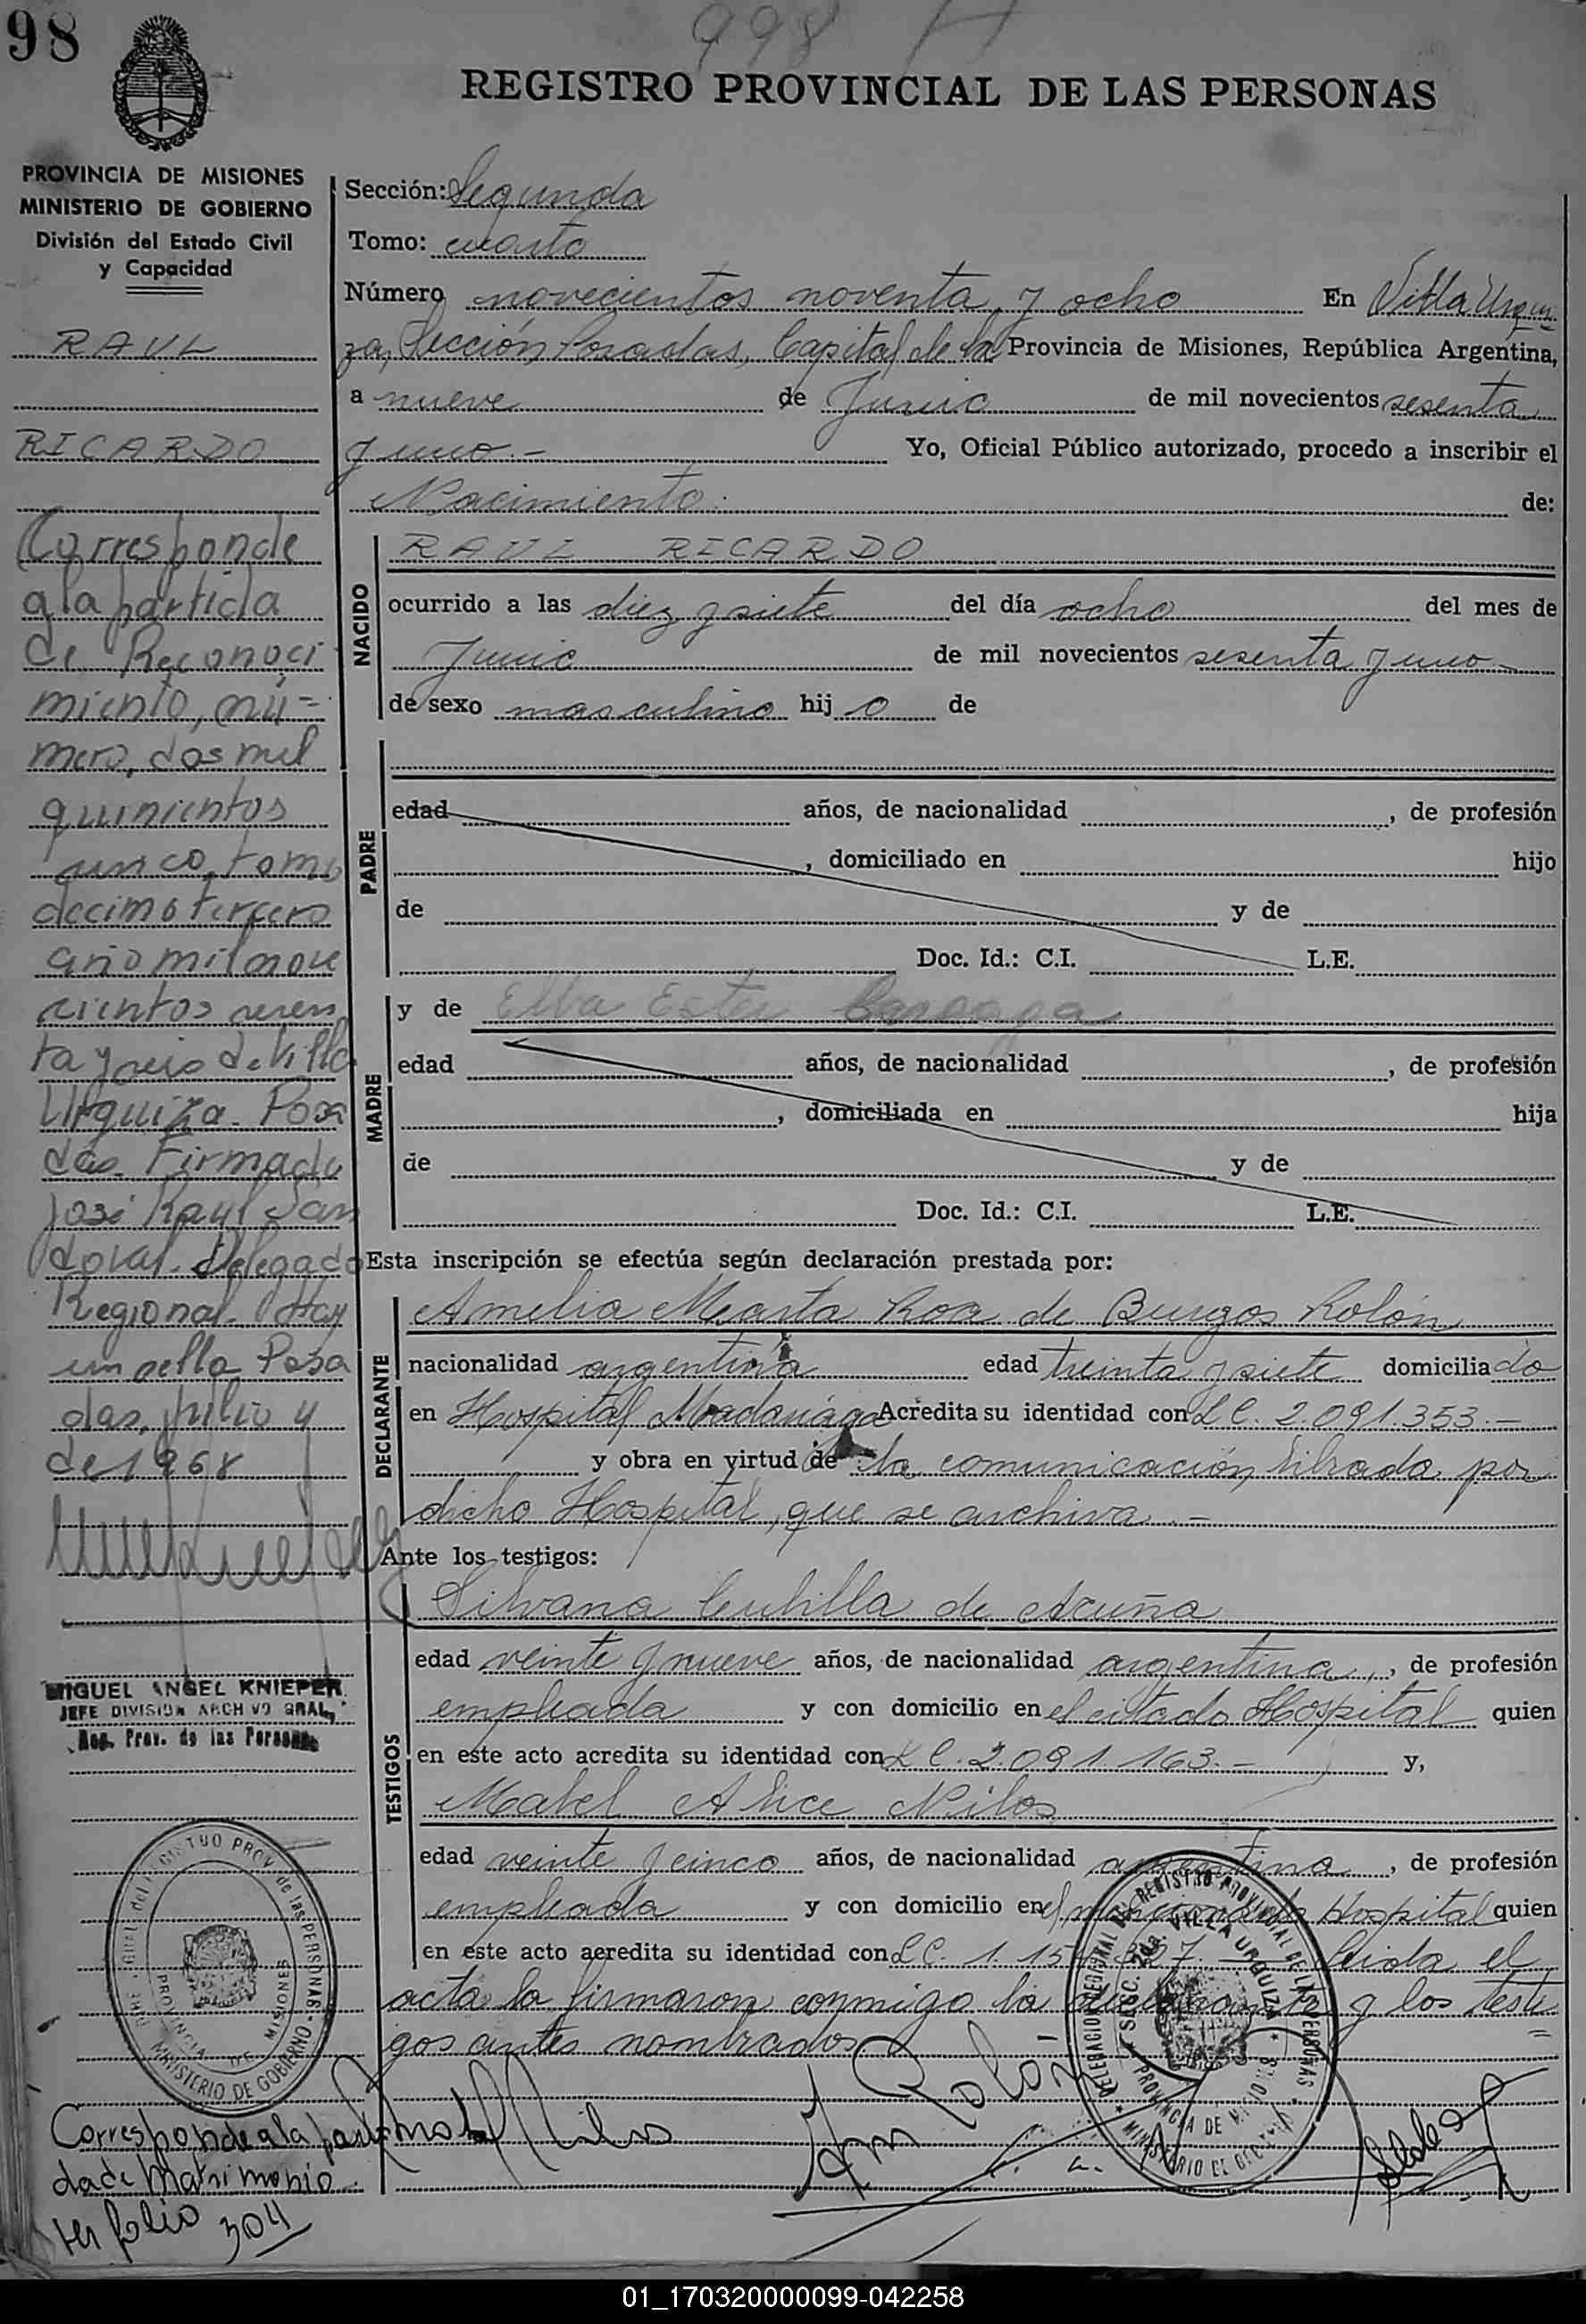 98
998 A
REGISTRO PROVINCIAL DE LAS PERSONAS
PROVINCIA DE MISIONES
MINISTERIO DE GOBIERNO
División del Estado Civil
y Capacidad
RAUL
RICARDO
Corresponde
a la partida
de Reconoci
miento, nú=
mero, dos mil
quinientos
cinco, tomo
decimo tercero
año mil nove
cientos sesen
ta y seis de Villa
Urquiza. Posa
das. Firmado
José Raul San
doval. Delegado
Regional. Hay
un sello Posa
das, julio 4
de 1968
MIGUEL ANGEL KNIEPER
JEFE DIVISION ARCHIVO GRAL.
Reg. Prov. de las Personas
Corresponde a la parti
da de Matrimonio
folio 304
Sección: Segunda
Tomo: cuarto
Número novecientos noventa y ocho En Villa Urqui
za, Sección Posadas, Capital de la Provincia de Misiones, República Argentina,
a nueve de Junio de mil novecientos sesenta
y uno.- Yo, Oficial Público autorizado, procedo a inscribir el
Nacimiento de:
NACIDO
RAUL RICARDO
ocurrido a las diez y siete del día ocho del mes de
Junio de mil novecientos sesenta y uno
de sexo masculino hij o de
PADRE
edad años, de nacionalidad , de profesión
, domiciliado en hijo
de y de
Doc. Id.: C.I. L.E.
MADRE
y de Elba Ester
edad años, de nacionalidad , de profesión
, domiciliada en hija
de y de
Doc. Id.: C.I. L.E.
Esta inscripción se efectúa según declaración prestada por:
DECLARANTE
Amelia Marta Roa de Burgos Rolón
nacionalidad argentina edad treinta y siete domicilia do
en Hospital Madariaga Acredita su identidad con L C. 2.091.353.-
y obra en virtud de la comunicación librada por
dicho Hospital, que se archiva.-
Ante los testigos:
TESTIGOS
Silvana Cubilla de Acuña
edad veinte y nueve años, de nacionalidad argentina, de profesión
empleada y con domicilio en el citado Hospital quien
en este acto acredita su identidad con L C. 2.091.163.- y,
Mabel Alice Nilos
edad veinte y cinco años, de nacionalidad argentina, de profesión
empleada y con domicilio en el mencionado Hospital quien
en este acto acredita su identidad con L C. 1.15 327 Leida el
acta la firmaron conmigo la declarante y los testi
gos antes nombrados
DELEGACION REGIONAL DE REGISTRO PROVINCIAL DE LAS PERSONAS
SECC. 2da. VILLA URQUIZA
PROVINCIA DE MISIONES
MINISTERIO DE GOBIERNO
PROV. de las PERSONAS
PROVINCIA DE MISIONES
MINISTERIO DE GOBIERNO
01_170320000099-042258